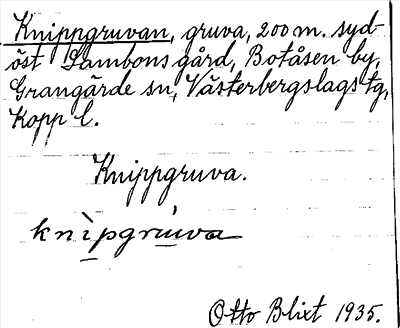 Knippgruvan, gruva, 200 m. syd-
öst Lambons gård, Botåsen by,
Grangärde sn, Västerbergslags tg,
Kopp l.
Knippgruva.
knìpgrúva
Otto Blixt 1935.